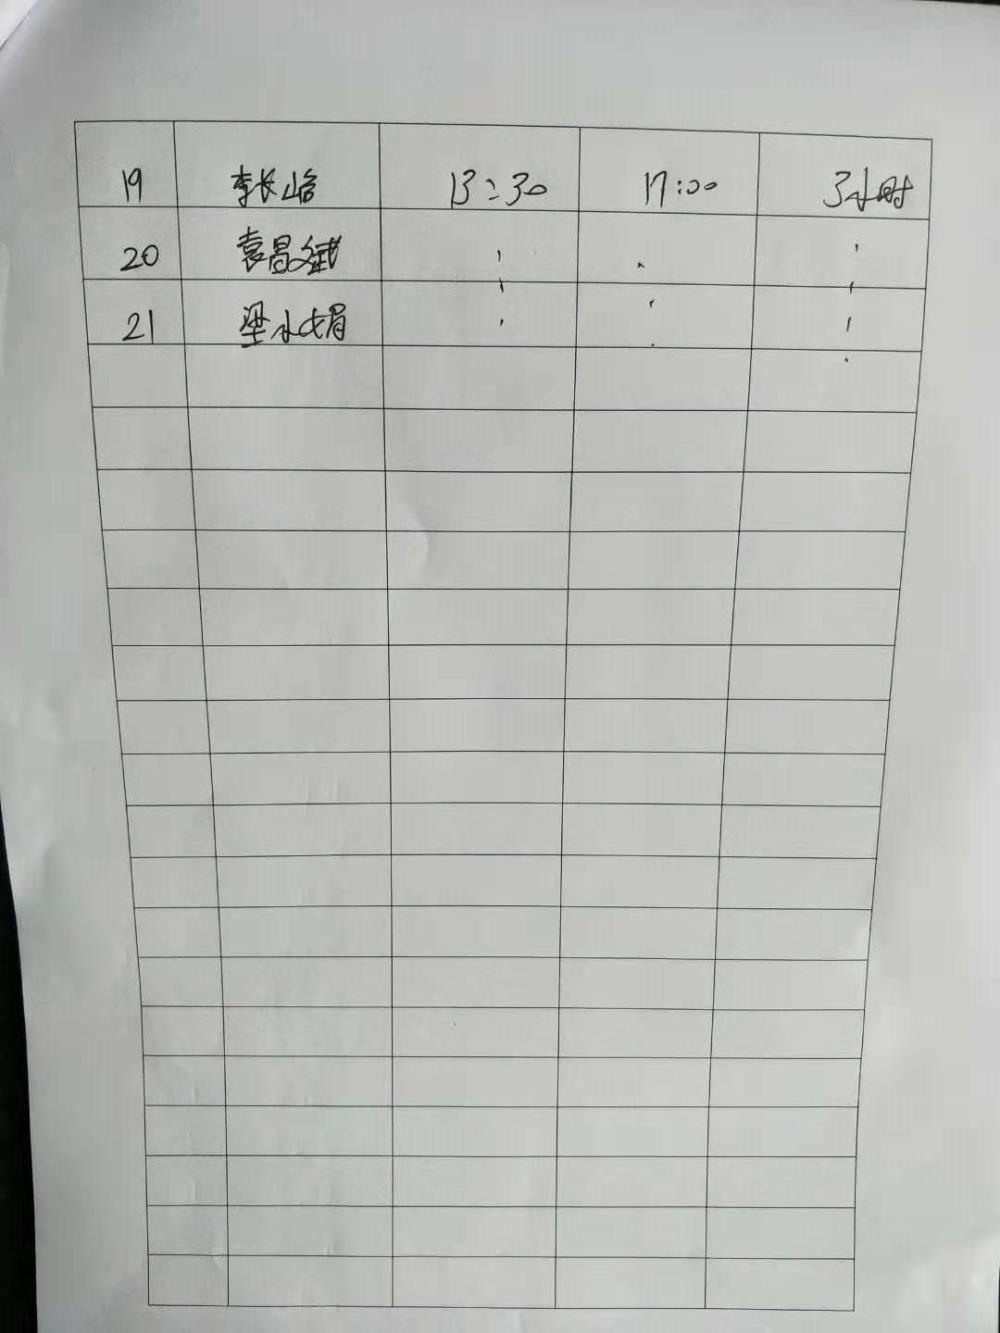 19 李长峪 13:30 17:00 3小时
20 袁昌斌
21 梁小娟